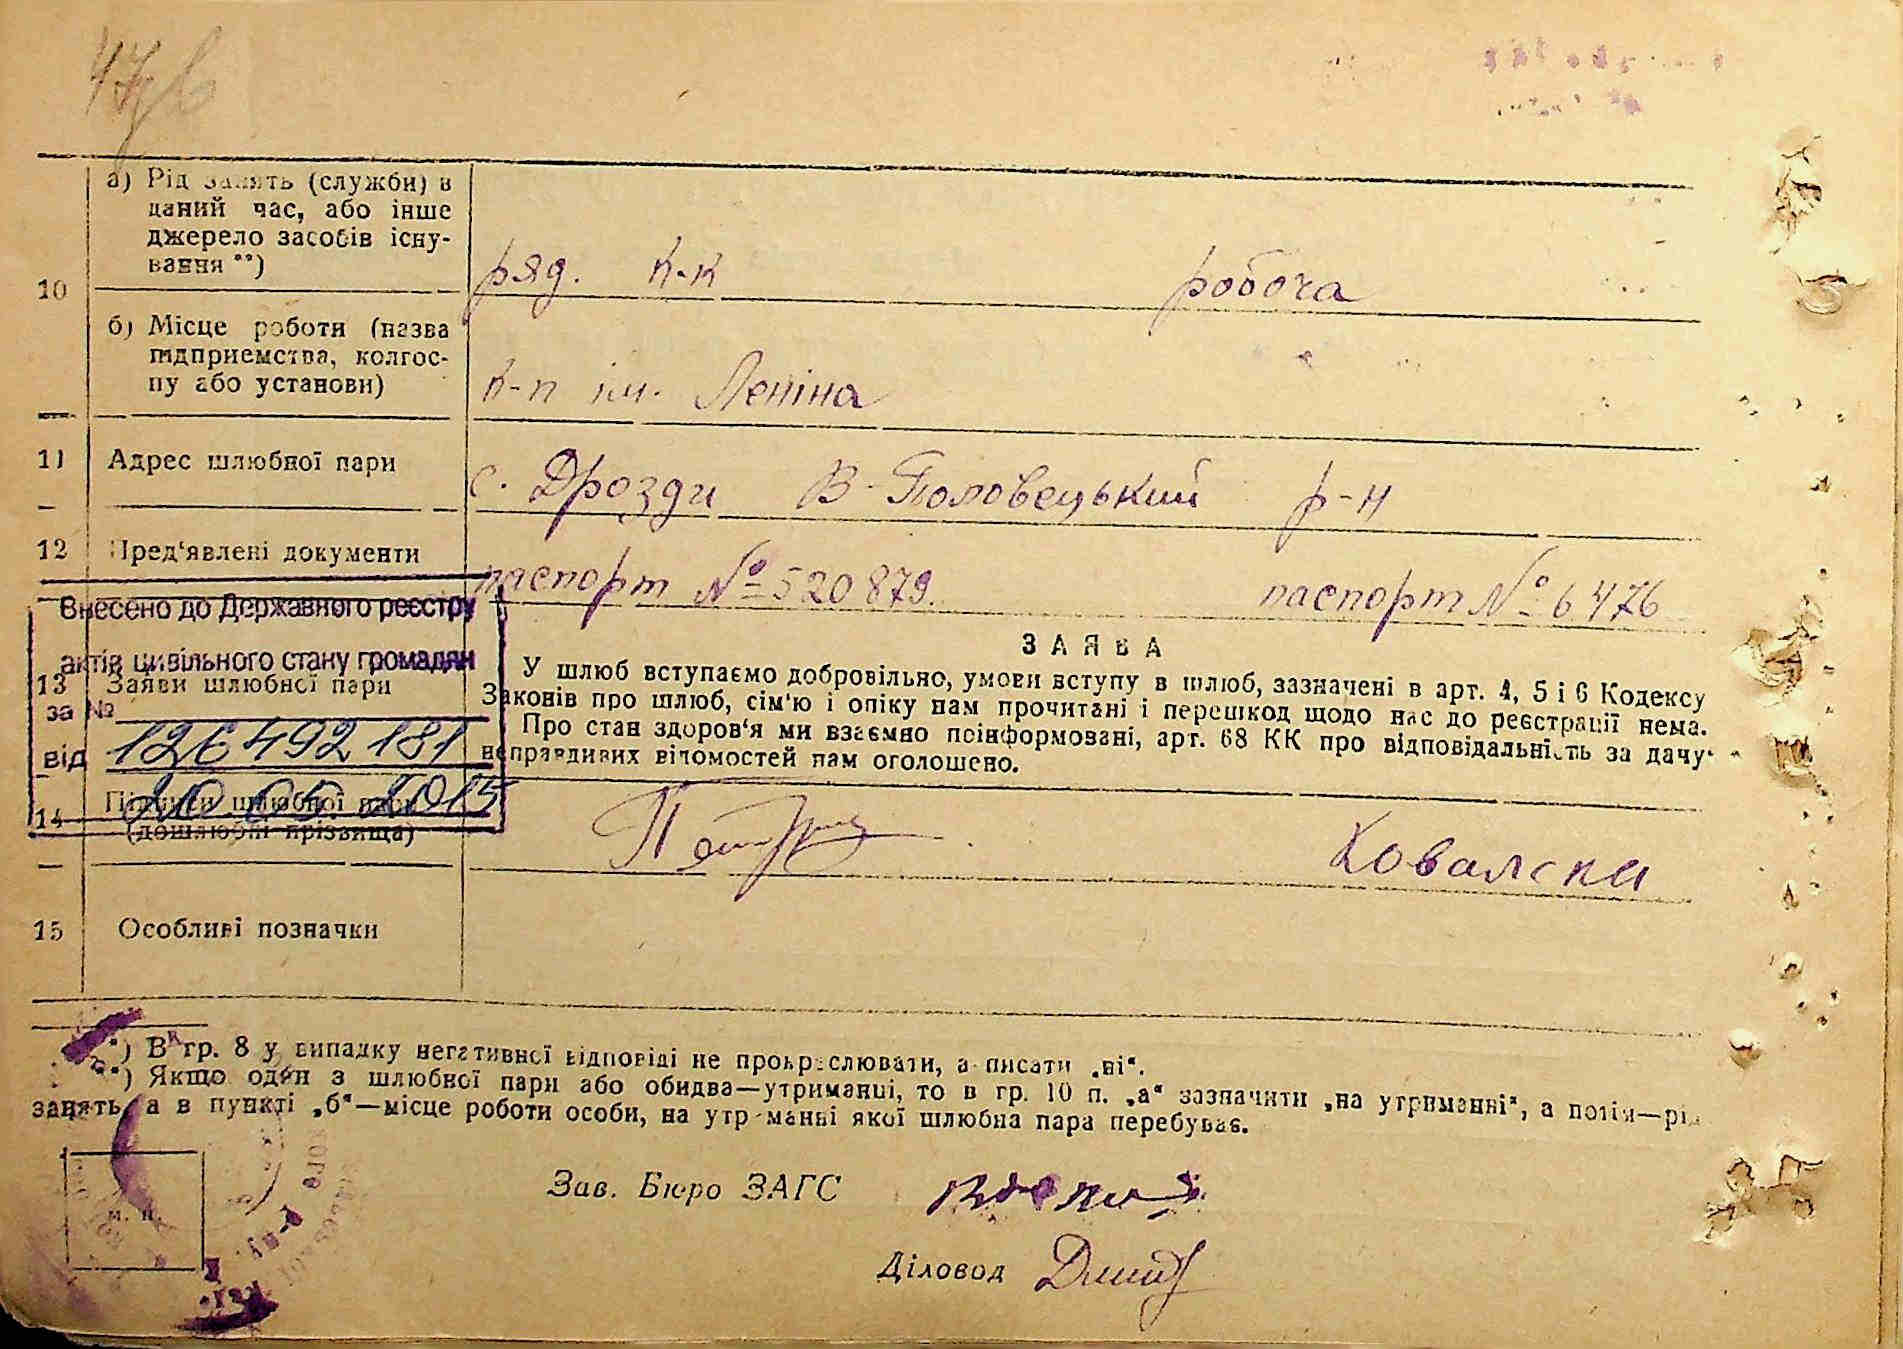 47
10
а) Рід занять (служби) в
даний час, або інше
джерело засобів існу-
вання **)
ряд. к-к
робоча
б) Місце роботи (назва
підприємства, колгос-
пу або установи)
к-п ім. Леніна
11 Адрес шлюбної пари
с. Дрозди В-Половецький р-н
12 Пред'явлені документи
паспорт № 520879.
паспорт № 6476
Внесено до Державного реєстру
актів цивільного стану громадян
за №
126492181
від
20.05.2015
13 Заяви шлюбної пари
ЗАЯВА
У шлюб вступаємо добровільно, умови вступу в шлюб, зазначені в арт. 4, 5 і 6 Кодексу
Законів про шлюб, сім'ю і опіку нам прочитані і перешкод щодо нас до реєстрації нема.
Про стан здоров'я ми взаємно поінформовані, арт. 68 КК про відповідальність за дачу
неправдивих відомостей нам оголошено.
14 Підписи шлюбної пари
(дошлюбні прізвища)
Ковальска
15 Особливі позначки
*) В гр. 8 у випадку негативної відповіді не прокреслювати, а писати „ні".
**) Якщо один з шлюбної пари або обидва—утриманці, то в гр. 10 п. „а" зазначити „на утриманні", а потім—рід
занять, а в пункті „б"—місце роботи особи, на утриманні якої шлюбна пара перебуває.
Зав. Бюро ЗАГС
Діловод
м. п.